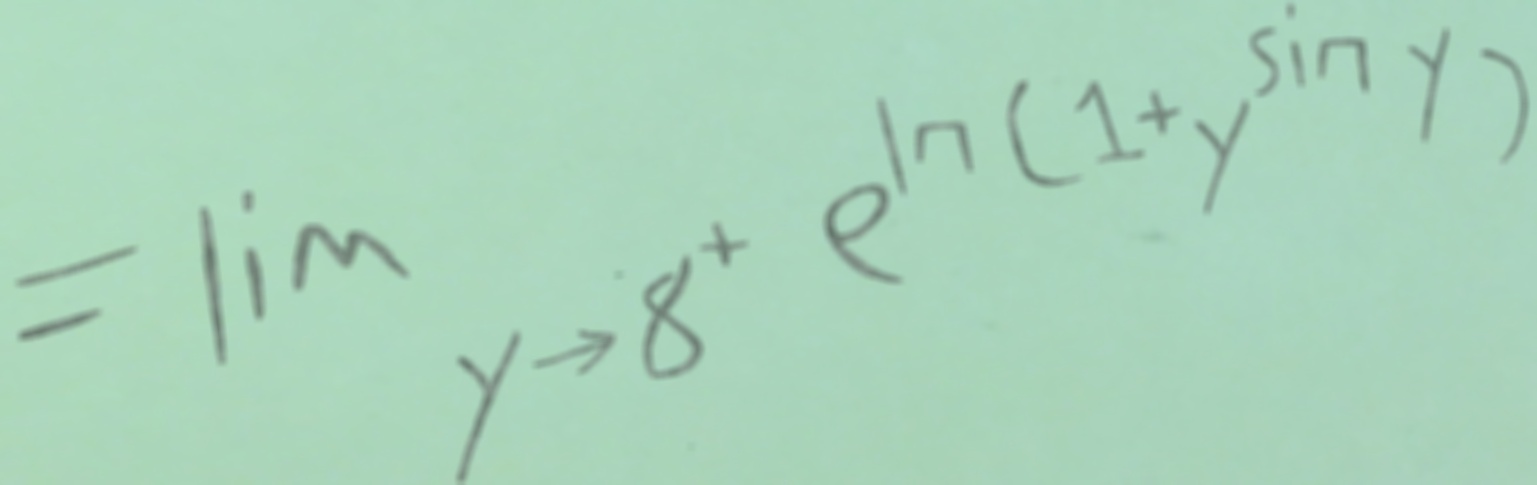 = lim_{y→8^+} e^{ln(1+y^{sin y})}